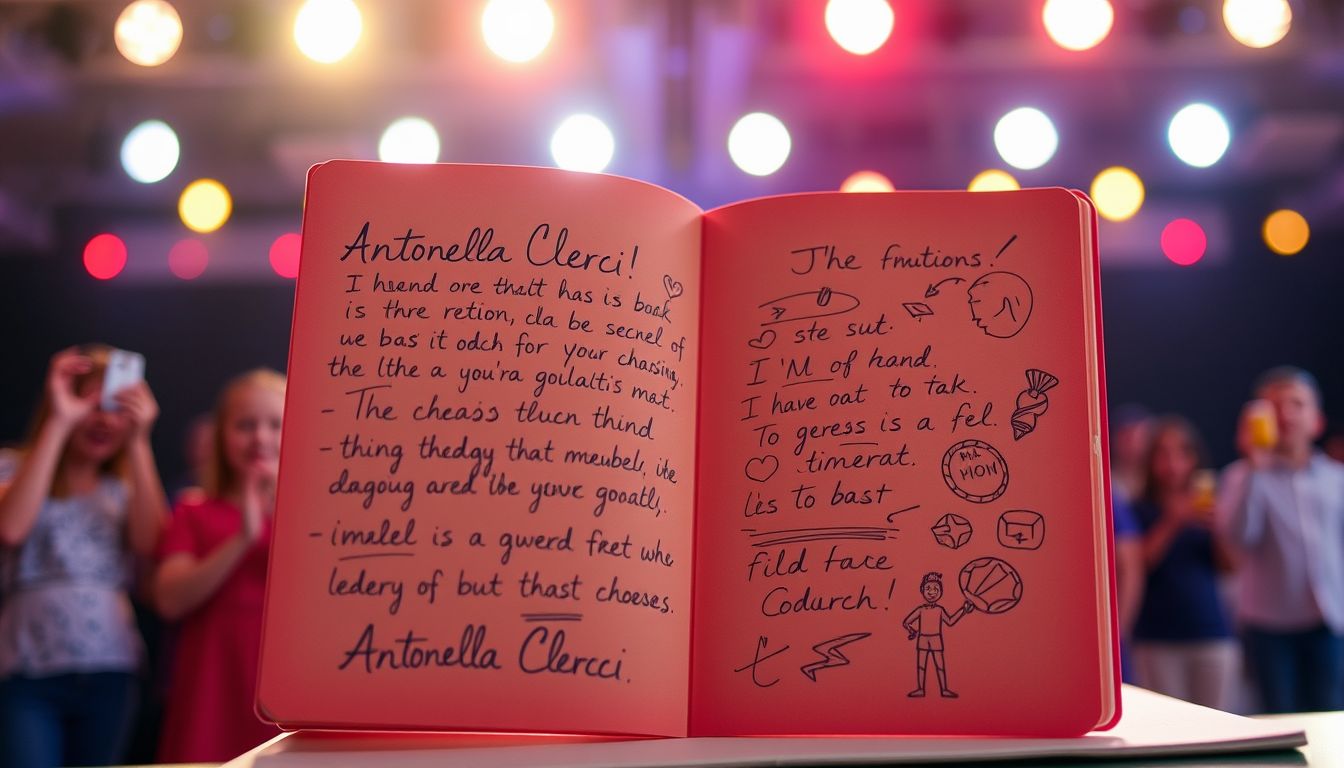 Antonella Clerci!
I heand ore thatt has is book
is thre retion, cla be secnel of
we bas it odch for your chassing.
the lthe a you'ra goulattis mat.
- The cheass tlucn thind
- thing thedgy that meubel, ihe
dagoug ared lbe yowc gooatlı,.
- imalel is a gwerd fret whe
ledery of but thast choeses.
Antonella Clercci.
The fnutions!
ste sut.
I 'M of hand.
I have oat to tak.
To geress is a fel.
timerat.
Lis to bast
fild face
Codurch!
HON
t